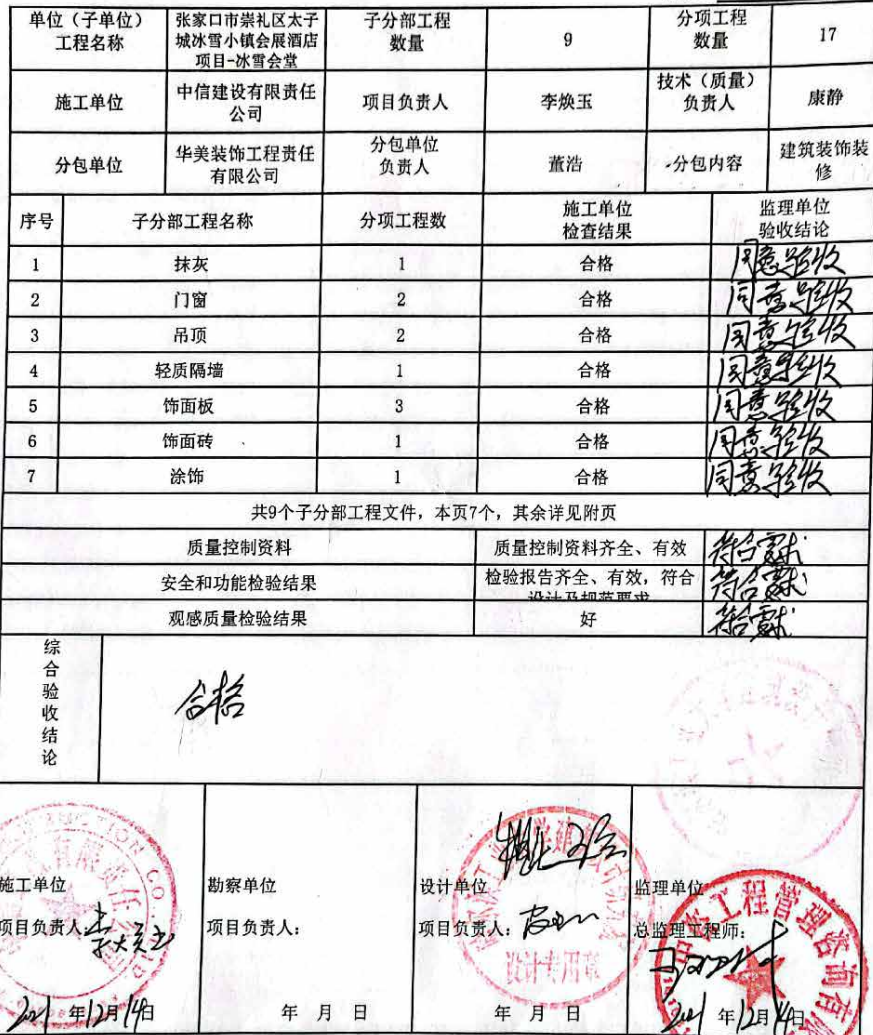 单位（子单位）
工程名称
张家口市崇礼区太子
城冰雪小镇会展酒店
项目-冰雪会堂
子分部工程
数量
9
分项工程
数量
17
施工单位
中信建设有限责任
公司
项目负责人
李焕玉
技术（质量）
负责人
康静
分包单位
华美装饰工程责任
有限公司
分包单位
负责人
董浩
分包内容
建筑装饰装
修
序号
子分部工程名称
分项工程数
施工单位
检查结果
监理单位
验收结论
1 抹灰 1 合格 同意验收
2 门窗 2 合格 同意验收
3 吊顶 2 合格 同意验收
4 轻质隔墙 1 合格 同意验收
5 饰面板 3 合格 同意验收
6 饰面砖 1 合格 同意验收
7 涂饰 1 合格 同意验收
共9个子分部工程文件，本页7个，其余详见附页
质量控制资料 质量控制资料齐全、有效 符合要求
安全和功能检验结果
检验报告齐全、有效，符合
设计及规范要求
符合要求
观感质量检验结果 好 符合要求
综合验收结论
合格
施工单位
项目负责人:
2021年12月14日
勘察单位
项目负责人:
年 月 日
设计单位
项目负责人:
设计专用章
年 月 日
监理单位
总监理工程师:
工程管理咨询有
2021年12月14日